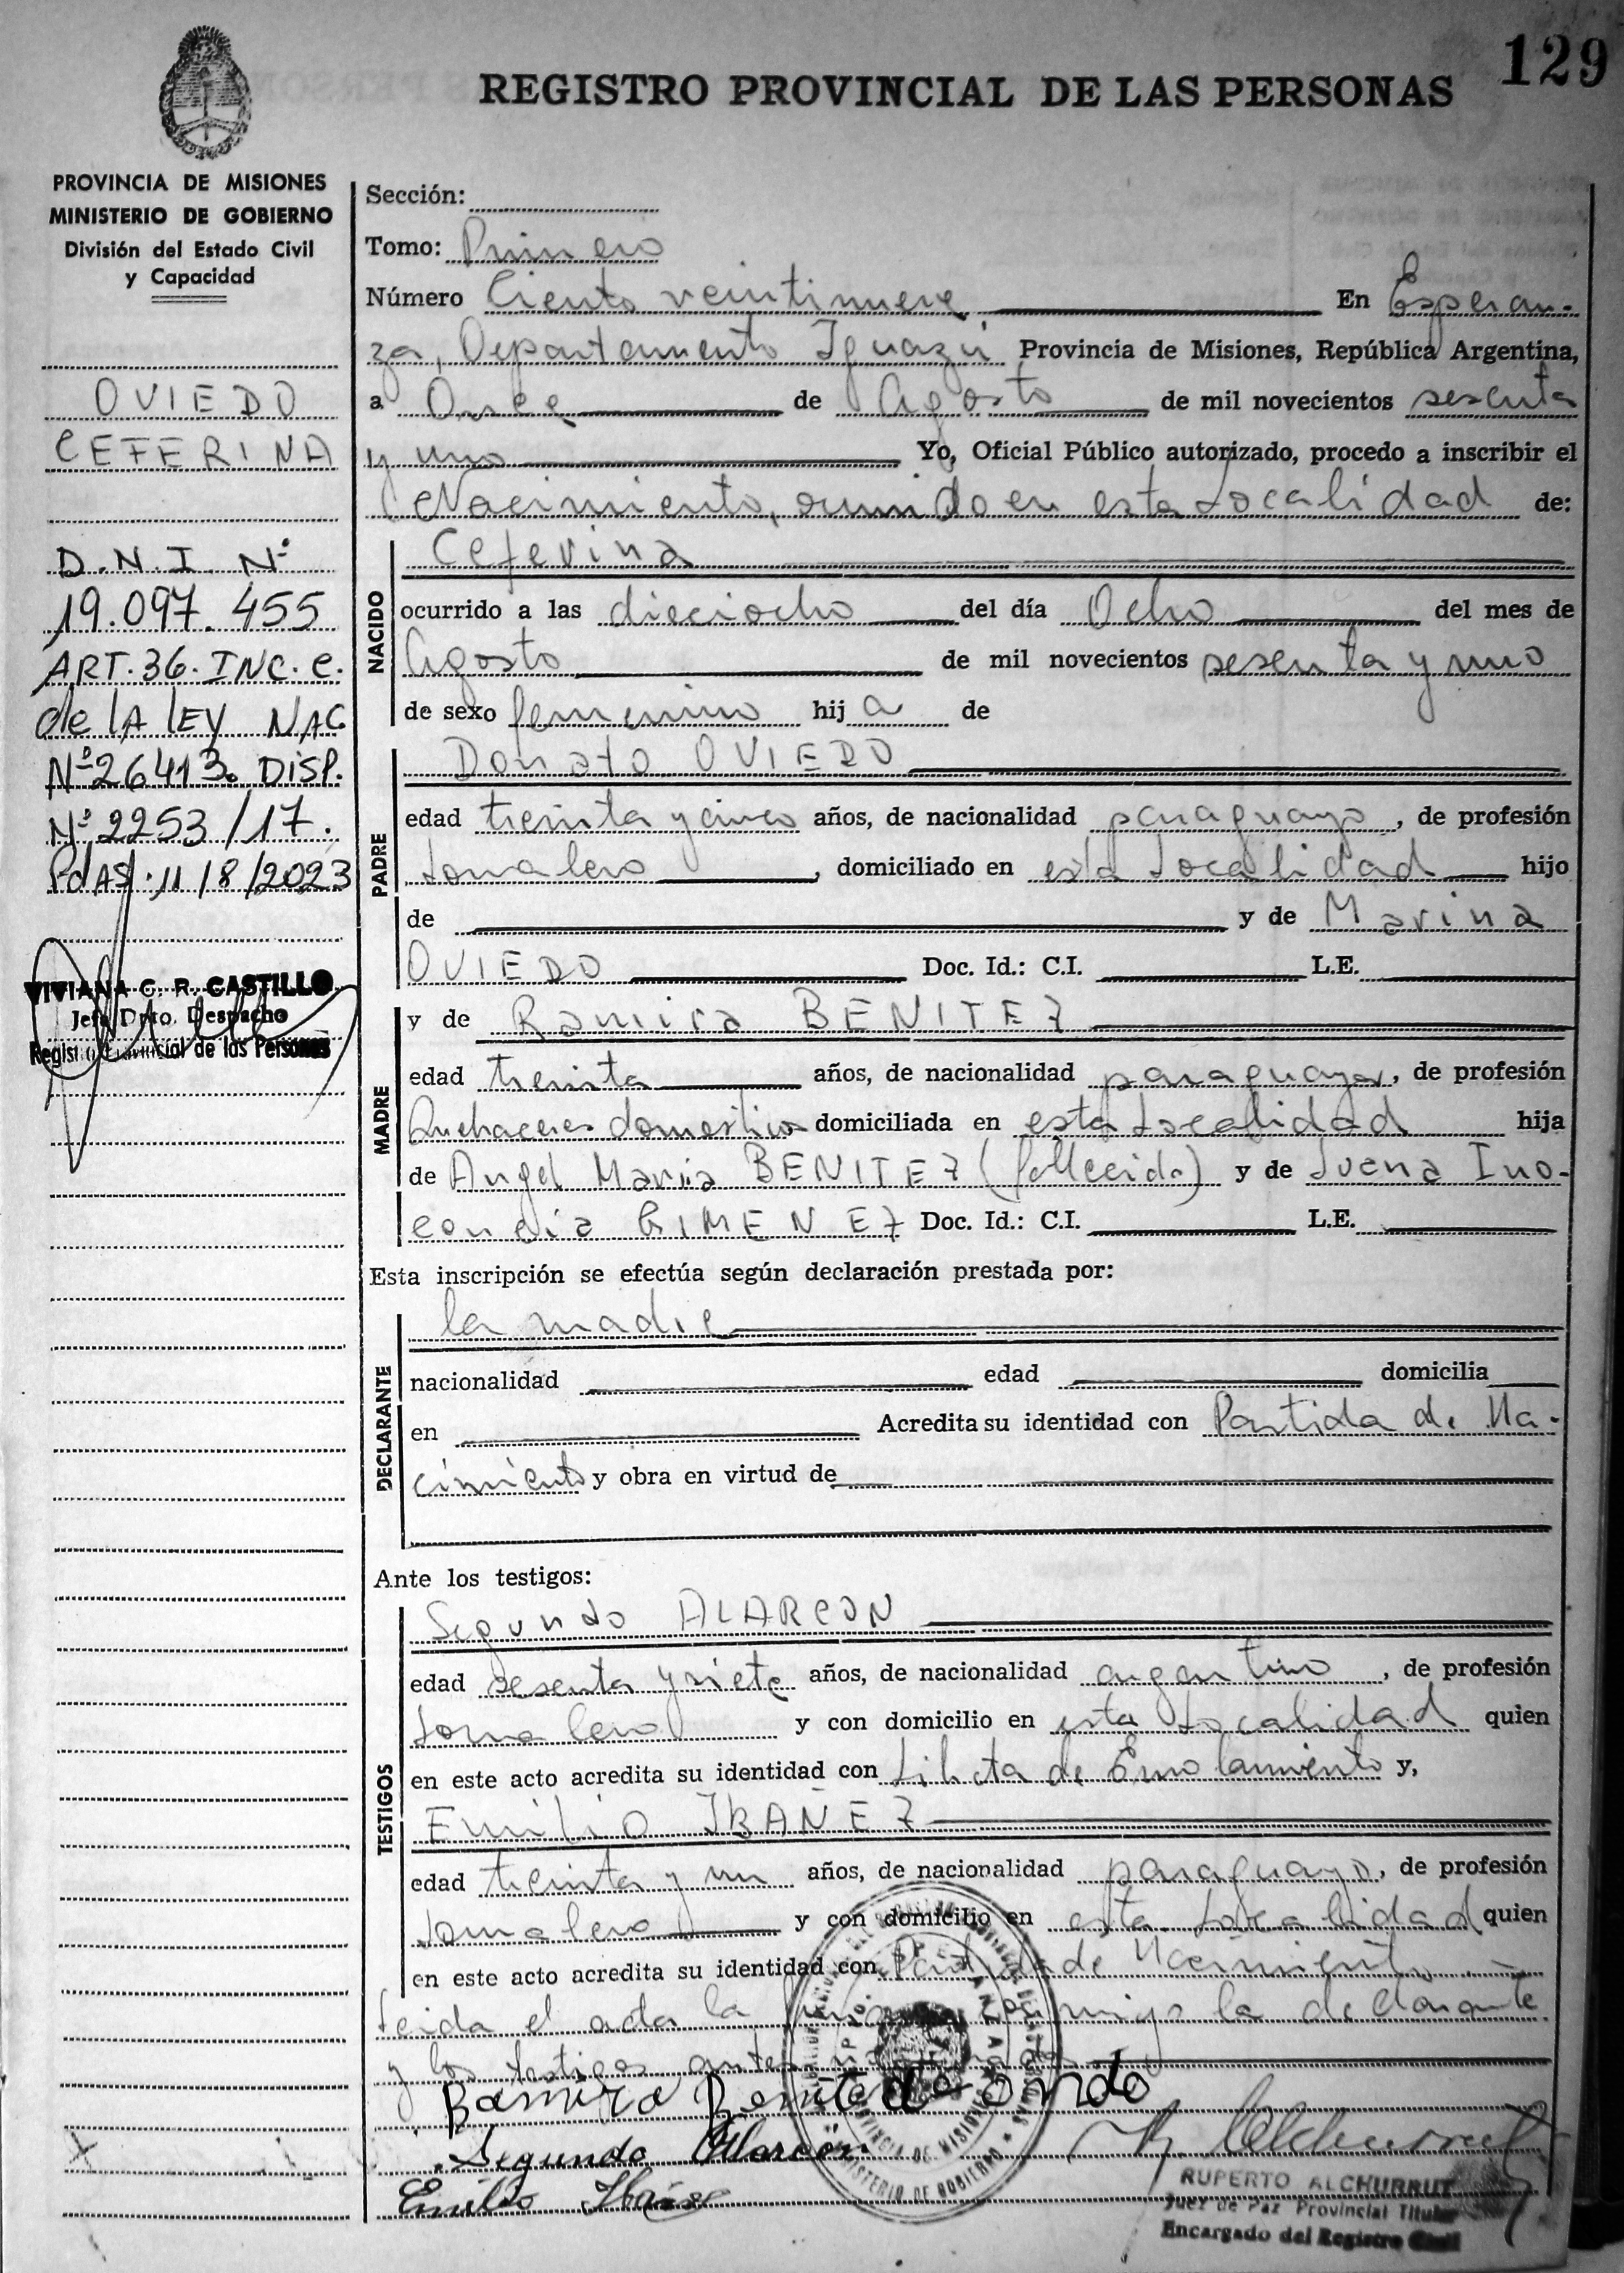 129
REGISTRO PROVINCIAL DE LAS PERSONAS
PROVINCIA DE MISIONES
MINISTERIO DE GOBIERNO
División del Estado Civil
y Capacidad
OVIEDO
CEFERINA
D.N.I. Nº
19.097.455
ART. 36. INC. C.
de LA LEY NAC
Nº 26413. DISP.
Nº 2253/17.
PdAS. 11/8/2023
VIVIANA C. R. CASTILLO
Jefe Dpto. Despacho
Registro Provincial de las Personas
Sección:
Tomo: Primero
Número Ciento veintinueve En Esperan-
za, Departamento Iguazú Provincia de Misiones, República Argentina,
a Once de Agosto de mil novecientos sesenta
y uno Yo, Oficial Público autorizado, procedo a inscribir el
Nacimiento, ocurrido en esta Localidad de:
NACIDO
Ceferina
ocurrido a las dieciocho del día Ocho del mes de
Agosto de mil novecientos sesenta y uno
de sexo femenino hija de
PADRE
Donato OVIEDO
edad treinta y cinco años, de nacionalidad paraguayo, de profesión
Jornalero, domiciliado en esta Localidad hijo
de y de Marina
OVIEDO Doc. Id.: C.I. L.E.
MADRE
y de Ramira BENITEZ
edad treinta años, de nacionalidad paraguaya, de profesión
Quehaceres domesticos domiciliada en esta Localidad hija
de Angel Maria BENITEZ (fallecido) y de Juana Ino-
cencia GIMENEZ Doc. Id.: C.I. L.E.
Esta inscripción se efectúa según declaración prestada por:
DECLARANTE
la madre
nacionalidad edad domicilia
en Acredita su identidad con Partida de Na-
cimiento y obra en virtud de
Ante los testigos:
TESTIGOS
Segundo ALARCON
edad sesenta y siete años, de nacionalidad argentino, de profesión
Jornalero y con domicilio en esta Localidad quien
en este acto acredita su identidad con Libreta de Enrolamiento y,
Emilio IBAÑEZ
edad treinta y un años, de nacionalidad paraguayo, de profesión
Jornalero y con domicilio en esta Localidad quien
en este acto acredita su identidad con Partida de Nacimiento.
Leida el acta la firman conmigo la declarante
y los testigos
Ramira Benite de
Segundo Alarcón
Emilio Ibañez
RUPERTO ALCHURRUT
Juez de Paz Provincial Titular
Encargado del Registro Civil